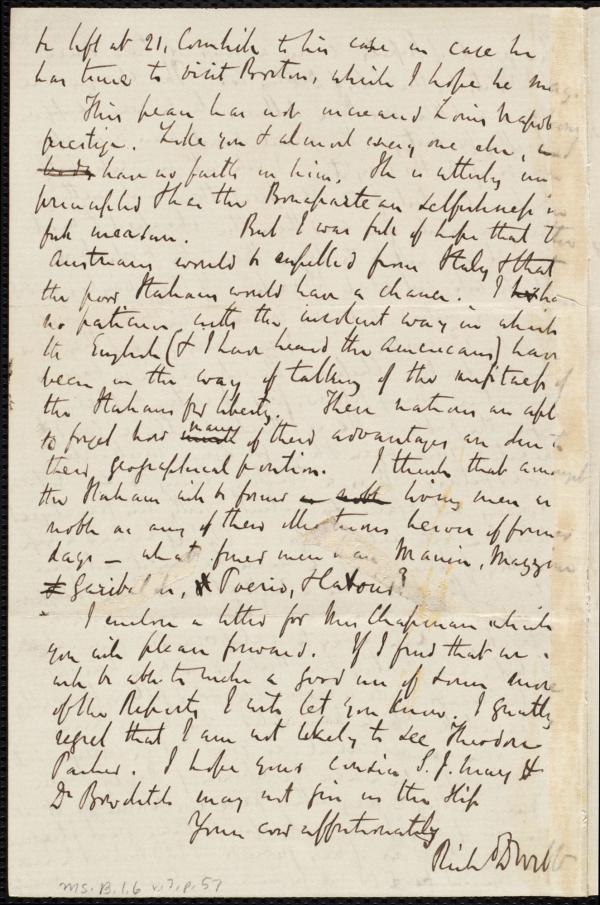 be left at 21, Cornhill to his care in case he
has time to visit Boston, which I hope he may.
This peace has not increased Louis Napoleon's
prestige. Like you & almost every one else, we
have no faith in him. He is utterly un-
principled & has the Bonapartean selfishness in
full measure. But I was full of hope that the
Austrians would be expelled from Italy & that
the poor Italians would have a chance. I have
no patience with the insolent way in which
the English (& I have heard the Americans) have
been in the way of talking of the unfitness of
the Italians for liberty. These nations are apt
to forget how many of their advantages are due to
their geographical position. I think that amongst
the Italians will be found living men as
noble as any of their illustrious heroes of former
days — what finer men than Manin, Mazzini
Garibaldi, Poerio, & Gavour?
I enclose a letter for Mrs Chapman which
you will please forward. If I find that we
will be able to make a good use of some more
of the Reports I will let you know. I greatly
regret that I am not likely to see Theodore
Parker. I hope your cousin S. J. May &
Dr Bowditch may not give us the slip
Yours ever affectionately
Rich D Webb
MS. B. 1. 6 v. 7, p. 57